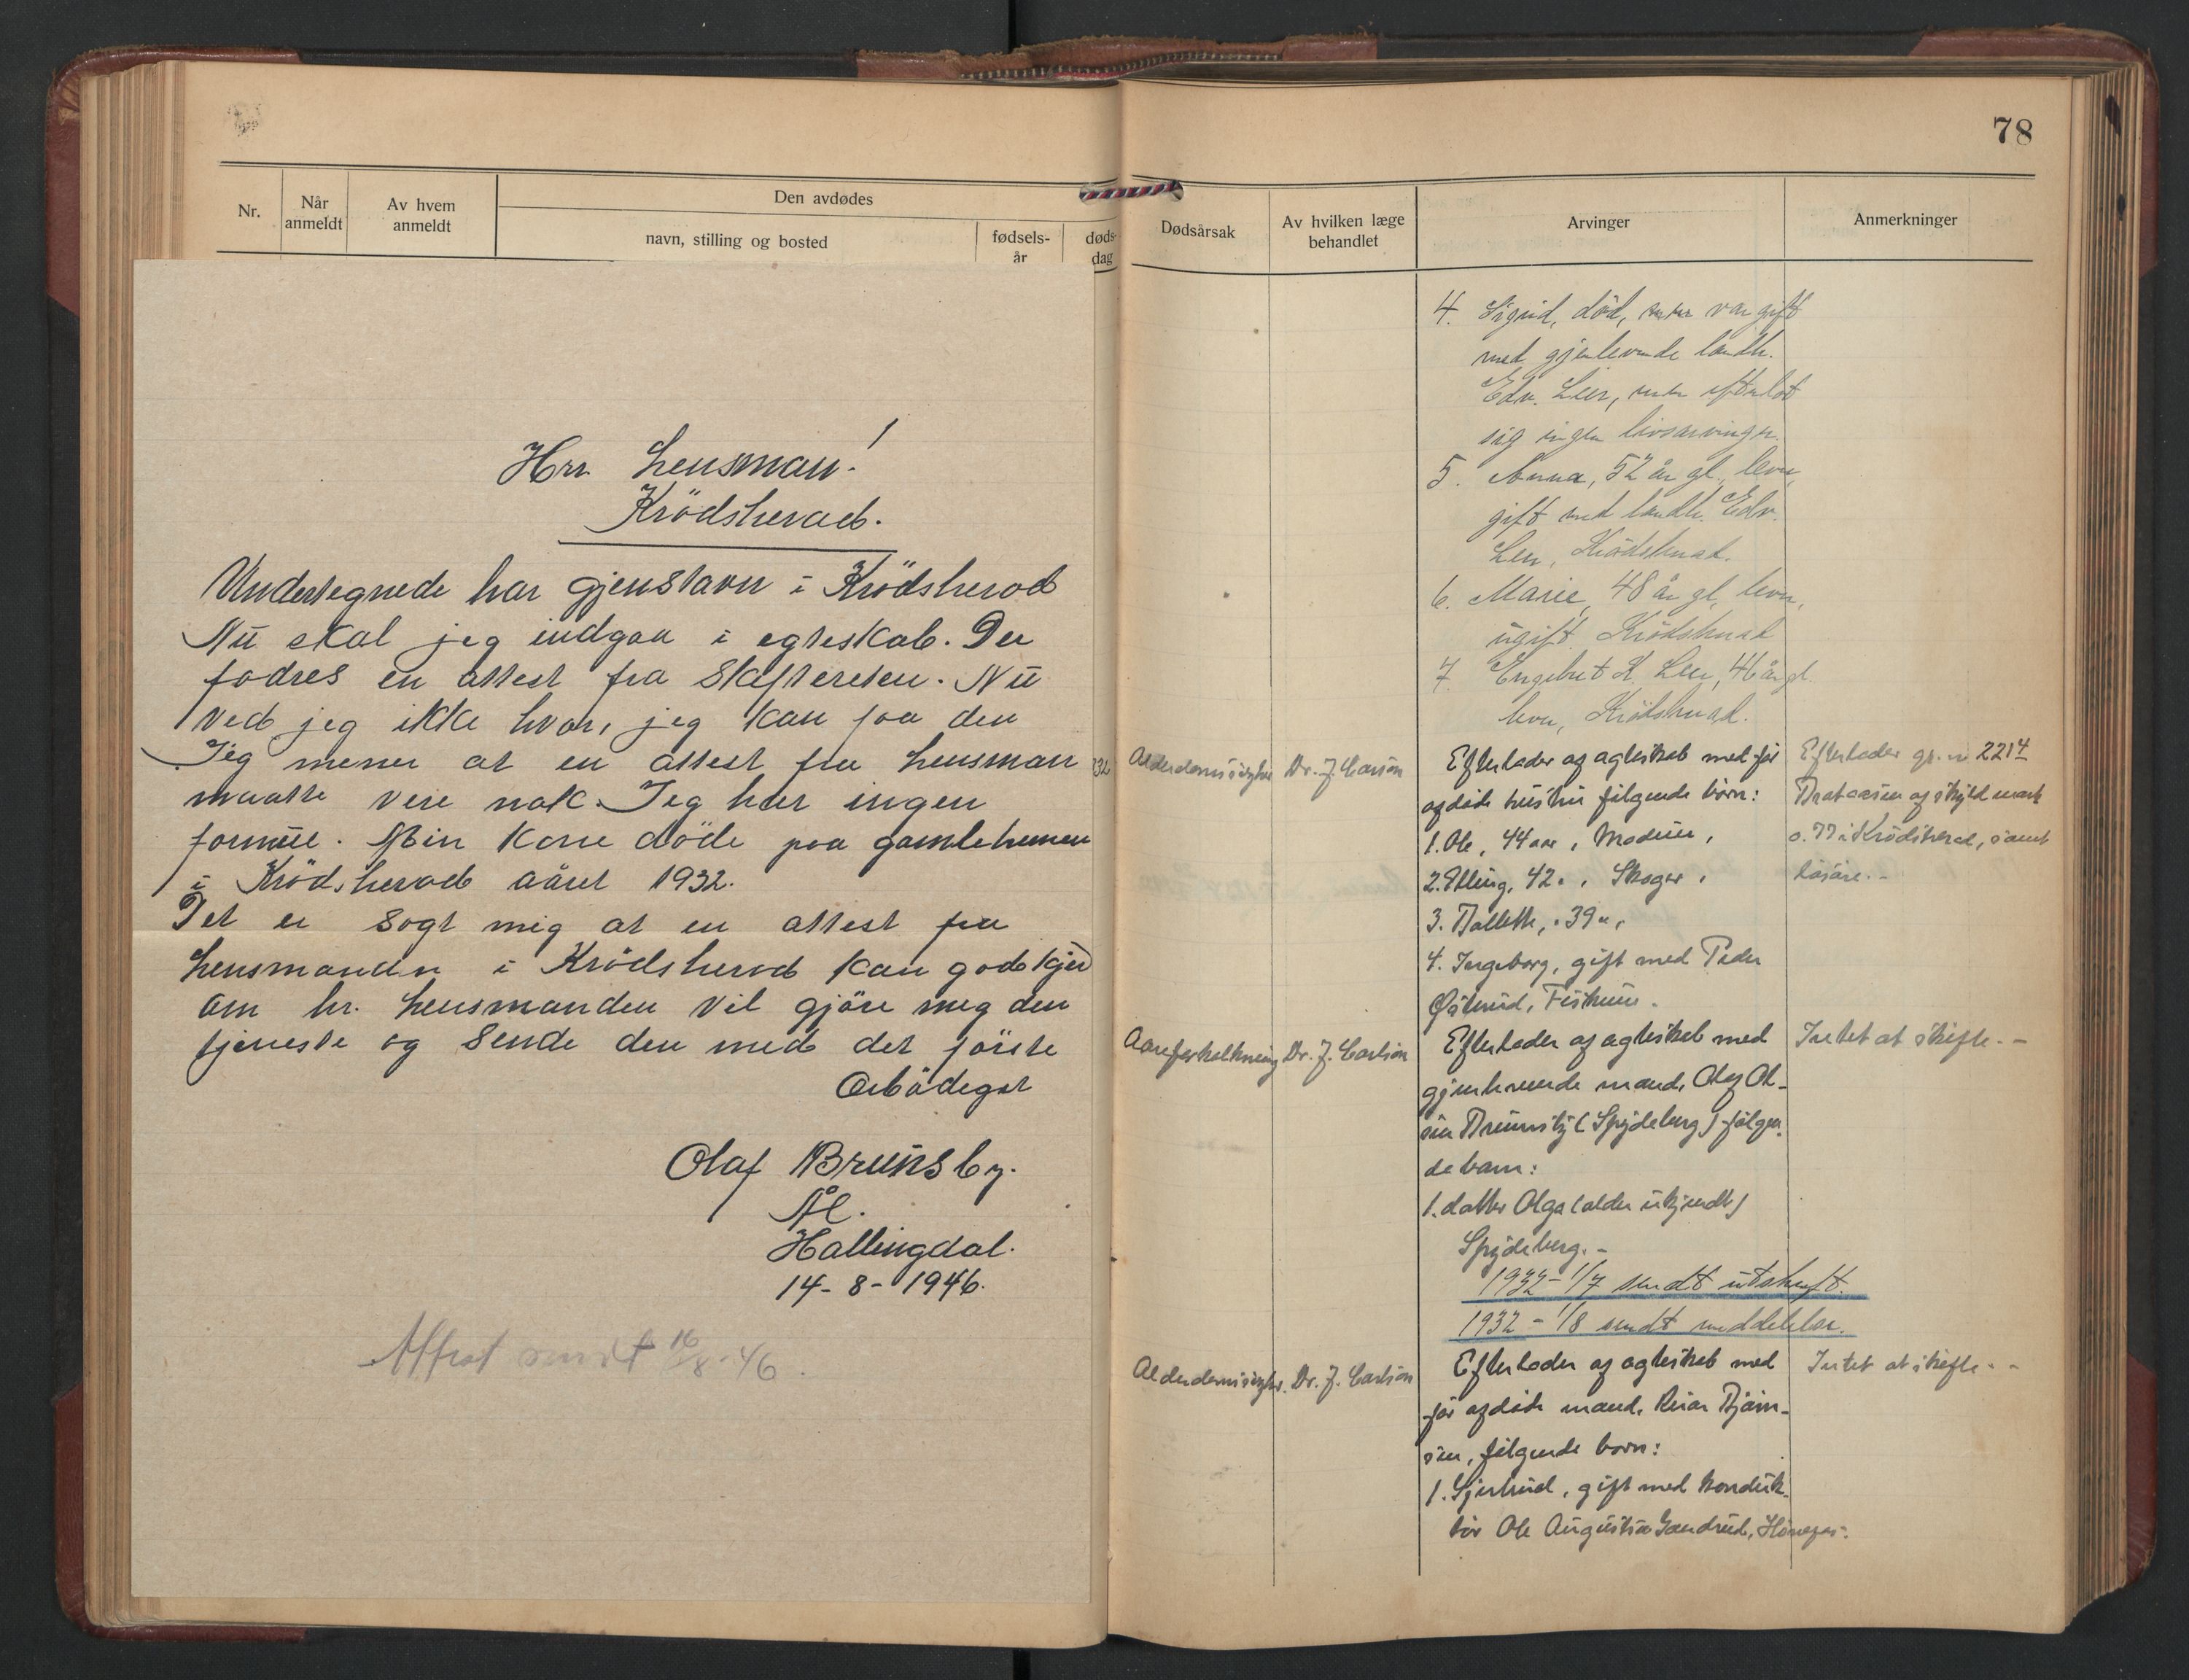 Nr.
Når anmeldt
Av hvem anmeldt
Den avdødes
navn, stilling og bosted
fødsels-
år
døds-
dag
Hrr Lensman!
Krödsherad.
Undertegnede har gjenstavn i Krödsherod
Nu skal jeg indgaa i egteskab. Der
fodres en attest fra Skiftereten. Nu
ved jeg ikke hvor, jeg kan faa den
Jeg mener at en attest fra Lensman
maatte vere nok. Jeg har ingen
formue. Min Kone döde paa gamlehemen
i Krödsherad aåret 1932.
Det er sagt mig at en attest fra
Lensmanden i Krödsherod kan godkjen
om hr. Lensmanden vil gjöre meg den
tjeneste og Sende den med det förste
Ærbödigst
Olaf Brunsby.
Ål.
Hallingdal.
14-8-1946.
Attest sendt 16/8-46.
78
Dødsårsak
Av hvilken læge
behandlet
Arvinger
Anmerkninger
4. Sigrid, död, som var gift
med gjenlevende landh.
Edv. Leer, som efterlot
sig ingen livsarvinger.
5. Anna, 52 år gl., lever,
gift med landh. Edv.
Leer, Krödsherad.
6. Marie, 48 år gl, lever,
ugift, Krödsherad
7. Engebret K. Leer, 46 år gl.
lever, Krödsherad.
32
Alderdomssvakhet
Dr. J. Carlson
Efterlader af ægteskab med før
afdøde hustru følgende børn:
1. Ole, 44 aar, Modum,
2. Elling, 42 ", Skoger,
3. , 39 ",
4. Ingeborg, gift med Peder
Østerud, Fiskum.
Efterlader gr. nr 2214
Brataasen af skyld mark
0.77 i Krödsherad, samt
løsøre.-
Aareforkalkning
Dr. J. Carlson
Efterlader af ægteskab med
gjenlevende mand, Olaf Ol-
sen Brunsby (Spydeberg) følgen-
de barn:
1. datter Olga (alder ukjendt)
Spydeberg.-
1932-1/7 sendt utskrift.
1932-1/8 sendt meddelelse.
Intet at skifte.-
Alderdomssvakhet.
Dr. J. Carlson
Efterlader af ægteskab med
før afdøde mand, Björn-
sen, følgende børn:
1. Gjertrud, gift med konduk-
tør Ole August Sandrud, Hönefos.
Intet at skifte.-